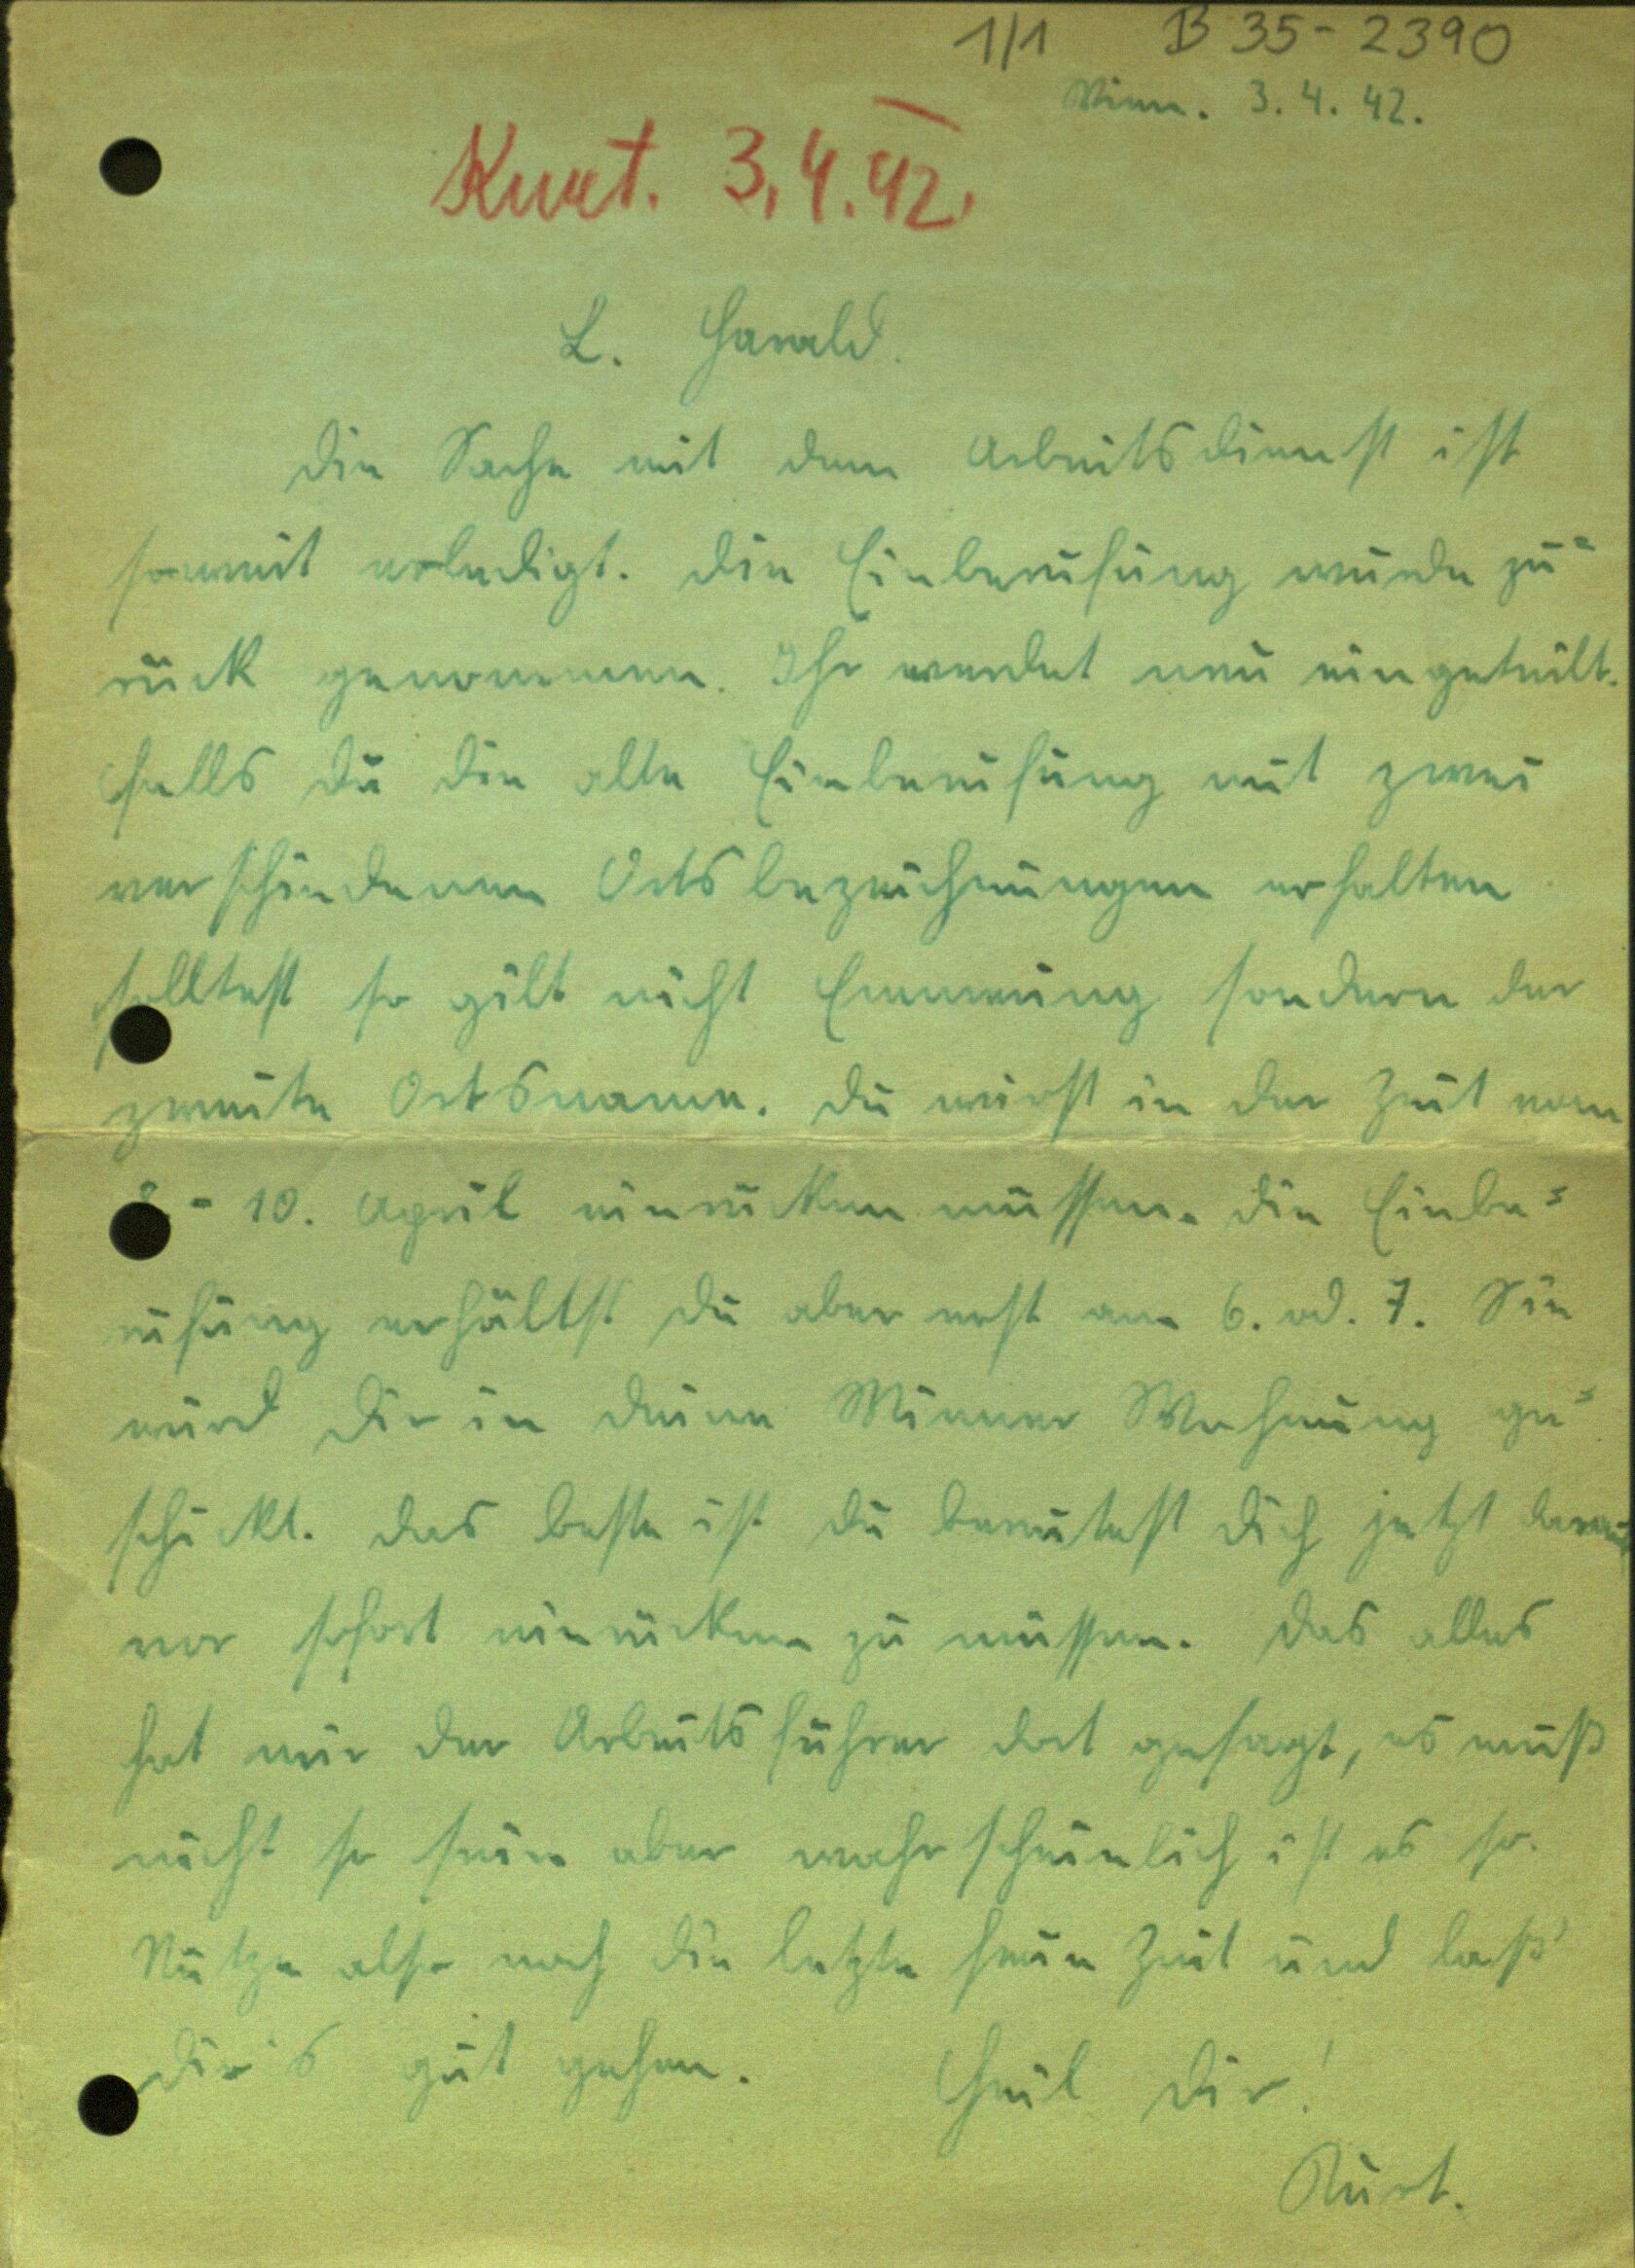 1/1 B 35-2390
Wien. 3. 4. 42.
Kurt. 3.4.42.
L. Harald.
die Sache mit dem Arbeitsdienst ist
soweit erledigt. die Einberufung wurde zu=
rück genommen. Ihr werdet neu eingeteilt.
Falls du die alte Einberufung mit zwei
verschiedenen Ortsbezeichnungen erhalten
solltest so gilt nicht sondern der
zweite Ortsname. du wirst in der Zeit vom
- 10. April einrücken müssen. die Einbe=
rufung erhältst du aber erst am 6. od. 7. Sie
wird dir in deine Wiener Wohnung ge=
schickt. das beste ist du bereitest dich jetzt darauf
vor sofort einrücken zu müssen. das alles
hat mir der Arbeitsführer dort gesagt, es muß
nicht so sein aber wahrscheinlich ist es so.
Nütze also noch die letzte freie Zeit und laß'
dir's gut gehen. Heil dir!
Kurt.